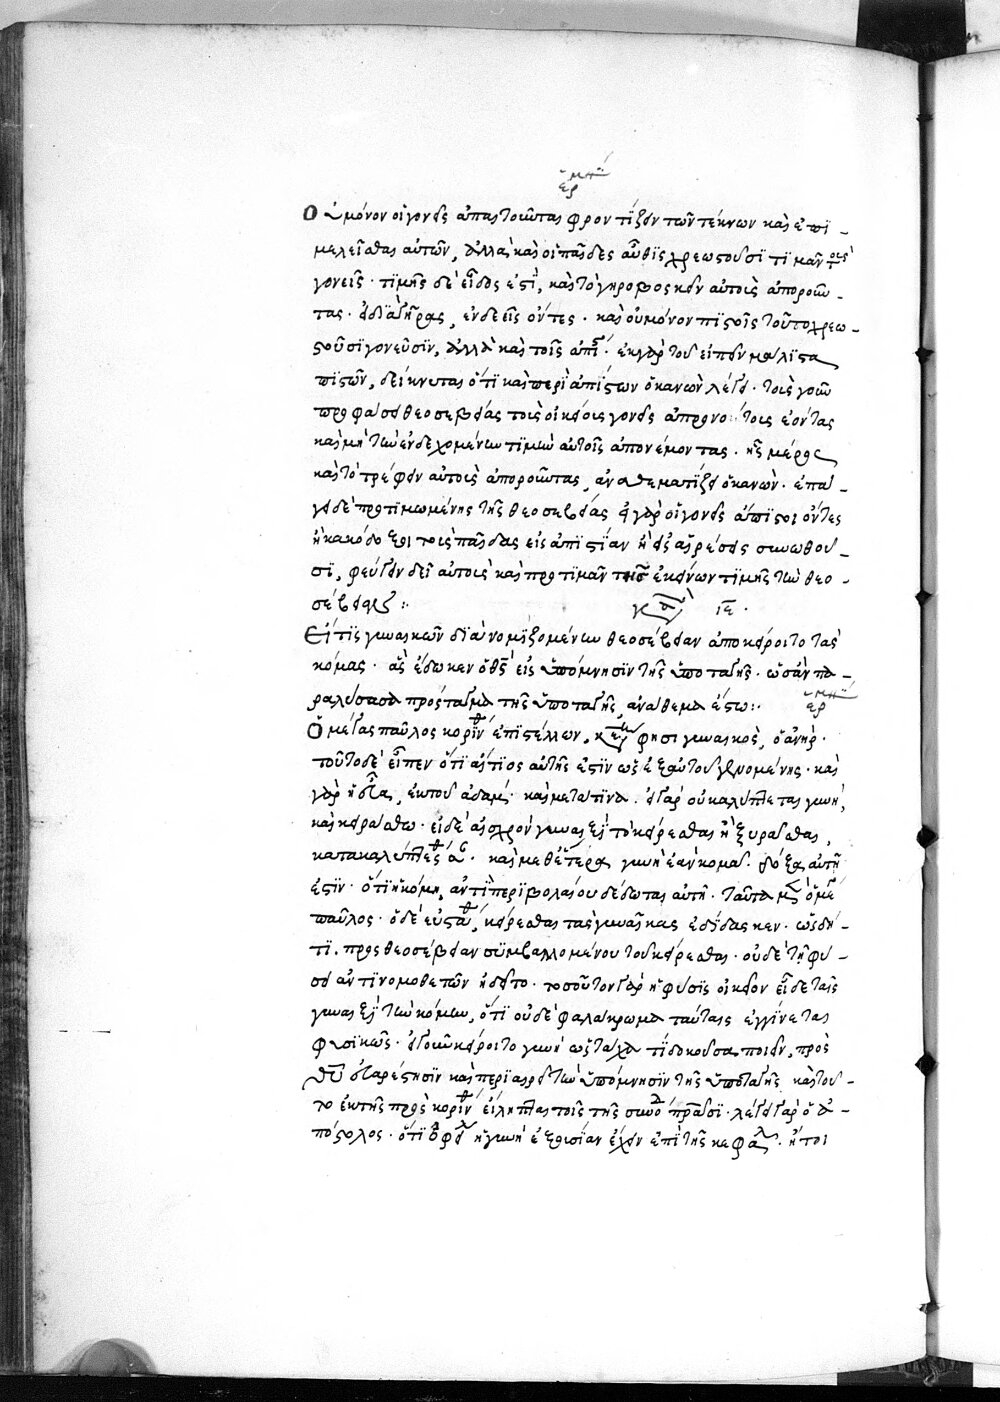 ἑρμην
Οὐ μόνον οἱ γονεῖς ἀπαιτοῦνται φροντίζειν τῶν τέκνων καὶ ἐπι-
μελεῖσθαι αὐτῶν, ἀλλὰ καὶ οἱ παῖδες αὖθις χρεωστοῦσι τιμᾶν τοὺς
γονεῖς· τιμῆς δὲ εἶδος ἐστὶ, καὶ τὸ γηροβοσκεῖν αὐτοὺς ἀποροῦν-
τας· ἢ διὰ γῆρας, ἐνδεεῖς ὄντες· καὶ οὐ μόνον πιστοῖς τοῦτο χρεω-
στοῦσι γονεῦσιν, ἀλλὰ καὶ τοῖς ἀπίστ· ἐκ γὰρ τοῦ εἰπεῖν μάλιστα
πιστῶν, δείκνυται ὅτι καὶ περὶ ἀπίστων ὁ κανὼν λέγει· τοὺς γοῦν
προφάσει θεοσεβείας τοῖς οἰκείοις γονεῦς ἀπρονοήτους ἐῶντας
καὶ μὴ τὴν ἐνδεχομένην τιμὴν αὐτοῖς ἀπονέμοντας· ἧς μέρος
καὶ τὸ τρέφειν αὐτοὺς ἀποροῦντας, ἀναθεματίζει ὁ κανών· ἐπά-
γει δὲ προτιμωμένης τῆς θεοσεβείας εἰ γὰρ οἱ γονεῖς ἄπιστοι ὄντες
ἢ κακόδοξοι τοὺς παῖδας εἰς ἀπιστίαν ἢ εἰς αἵρεσιν συνωθοῦ-
σι, φεύγειν δεῖ αὐτοὺς καὶ προτιμᾶν τῆς ἐκείνων τιμῆς τὴν θεο-
σέβειαν: κα ιζ.
Εἴ τις γυναικῶν διὰ νομιζομένην θεοσέβειαν ἀποκείροιτο τὰς
κόμας· ἃς ἔδωκεν ὁ θς εἰς ὑπόμνησιν τῆς ὑποταγῆς· ὡς ἂν πα-
ραλύσασα πρόσταγμα τῆς ὑποταγῆς, ἀνάθεμα ἔστω:- ἑρμην
Ὁ μέγας παῦλος κορινθ ἐπιστέλλων, κεφ φησι γυναικὸς, ὁ ἀνήρ·
τοῦτο δὲ εἶπεν ὅτι αἴτιος αὐτῆς ἐστὶν ὡς ἐξ αὐτοῦ γενομένης· καὶ
γὰρ ἡ εὔα, ἐκ τοῦ ἀδάμ· καὶ μετά τινα. εἰ γὰρ οὐ καλύπτεται γυνή,
καὶ κειράσθω· εἰ δὲ αἰσχρὸν γυναικὶ τὸ κείρεσθαι ἢ ξυρᾶσθαι,
κατακαλυπτέσθω· καὶ μεθ' ἕτερα γυνὴ ἐὰν κομᾶ· δόξα αὐτῆ
ἐστίν· ὅτι ἡ κόμη, ἀντὶ περιβολαίου δέδοται αὐτῆ· ταῦτα μὲν ὁ μέγ
παῦλος· ὁ δὲ εὐστάθ, κείρεσθαι τὰς γυναῖκας ἐδίδασκεν· ὡς δή-
τι πρὸς θεοσέβειαν συμβαλλομένου τοῦ κείρεσθαι· οὐδὲ τῆ φύ-
σει ἀντινομοθετῶν ἠδεῖτο· τοσοῦτον γὰρ ἡ φύσις οἰκεῖον εἶδε ταῖς
γυναιξὶ τὴν κόμην, ὅτι οὐδὲ φαλάκρωμα ταύταις ἐγγίνεται
φυσικῶς· εἰ γοῦν κείροιτο γυνὴ ὡς τάχα τι δοκοῦσα ποιεῖν, πρὸς
θυ εὐαρέστησιν καὶ περιαιρεῖ τὴν ὑπόμνησιν τῆς ὑποταγῆς καὶ τοῦ-
το ἐκ τῆς πρὸς κορινθ εἴληπται τοῖς τῆς συνόδ πατράσι· λέγει γὰρ ὁ ἀ-
πόστολος· ὅτι ὀφείλ ἡ γυνὴ ἐξουσίαν ἔχειν ἐπὶ τῆς κεφαλ· ἤτοι